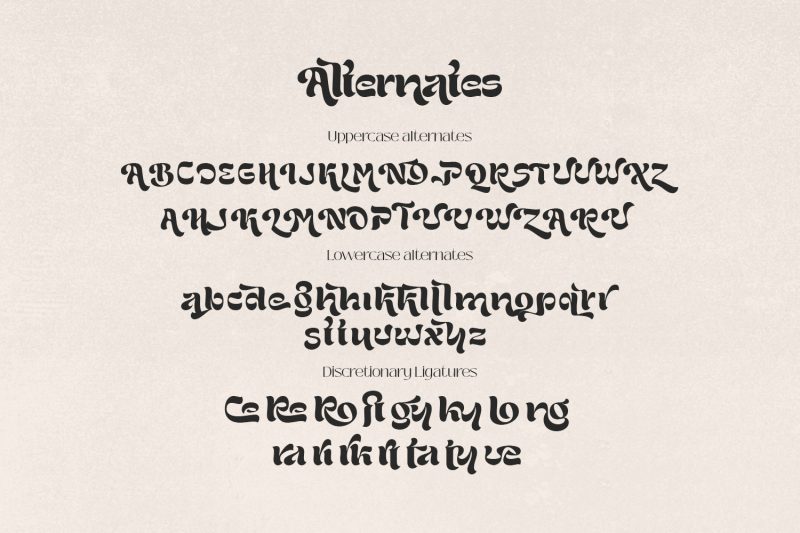 Alternates
Uppercase alternates
ABCDEGHIJKLMNOPQRSTUVWXZ
AHJKLMNOPTUVWZARU
Lowercase alternates
abcdeghhıkkllmnopqrr
sttuvwxyz
Discretionary Ligatures
Ce Re Ro fi gy ky lo ng
ra ri rk rt ta ty ve